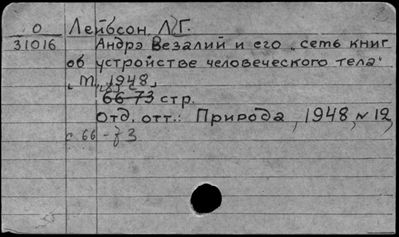 О
31016
Лейбсон, Л.Г.
Андрэ Везалий и его „сеть книг
об устройстве человеческого тела“
М., 1948,
66-73 стр.
Отд. отт.: Природа, 1948, № 12,
с. 66-73